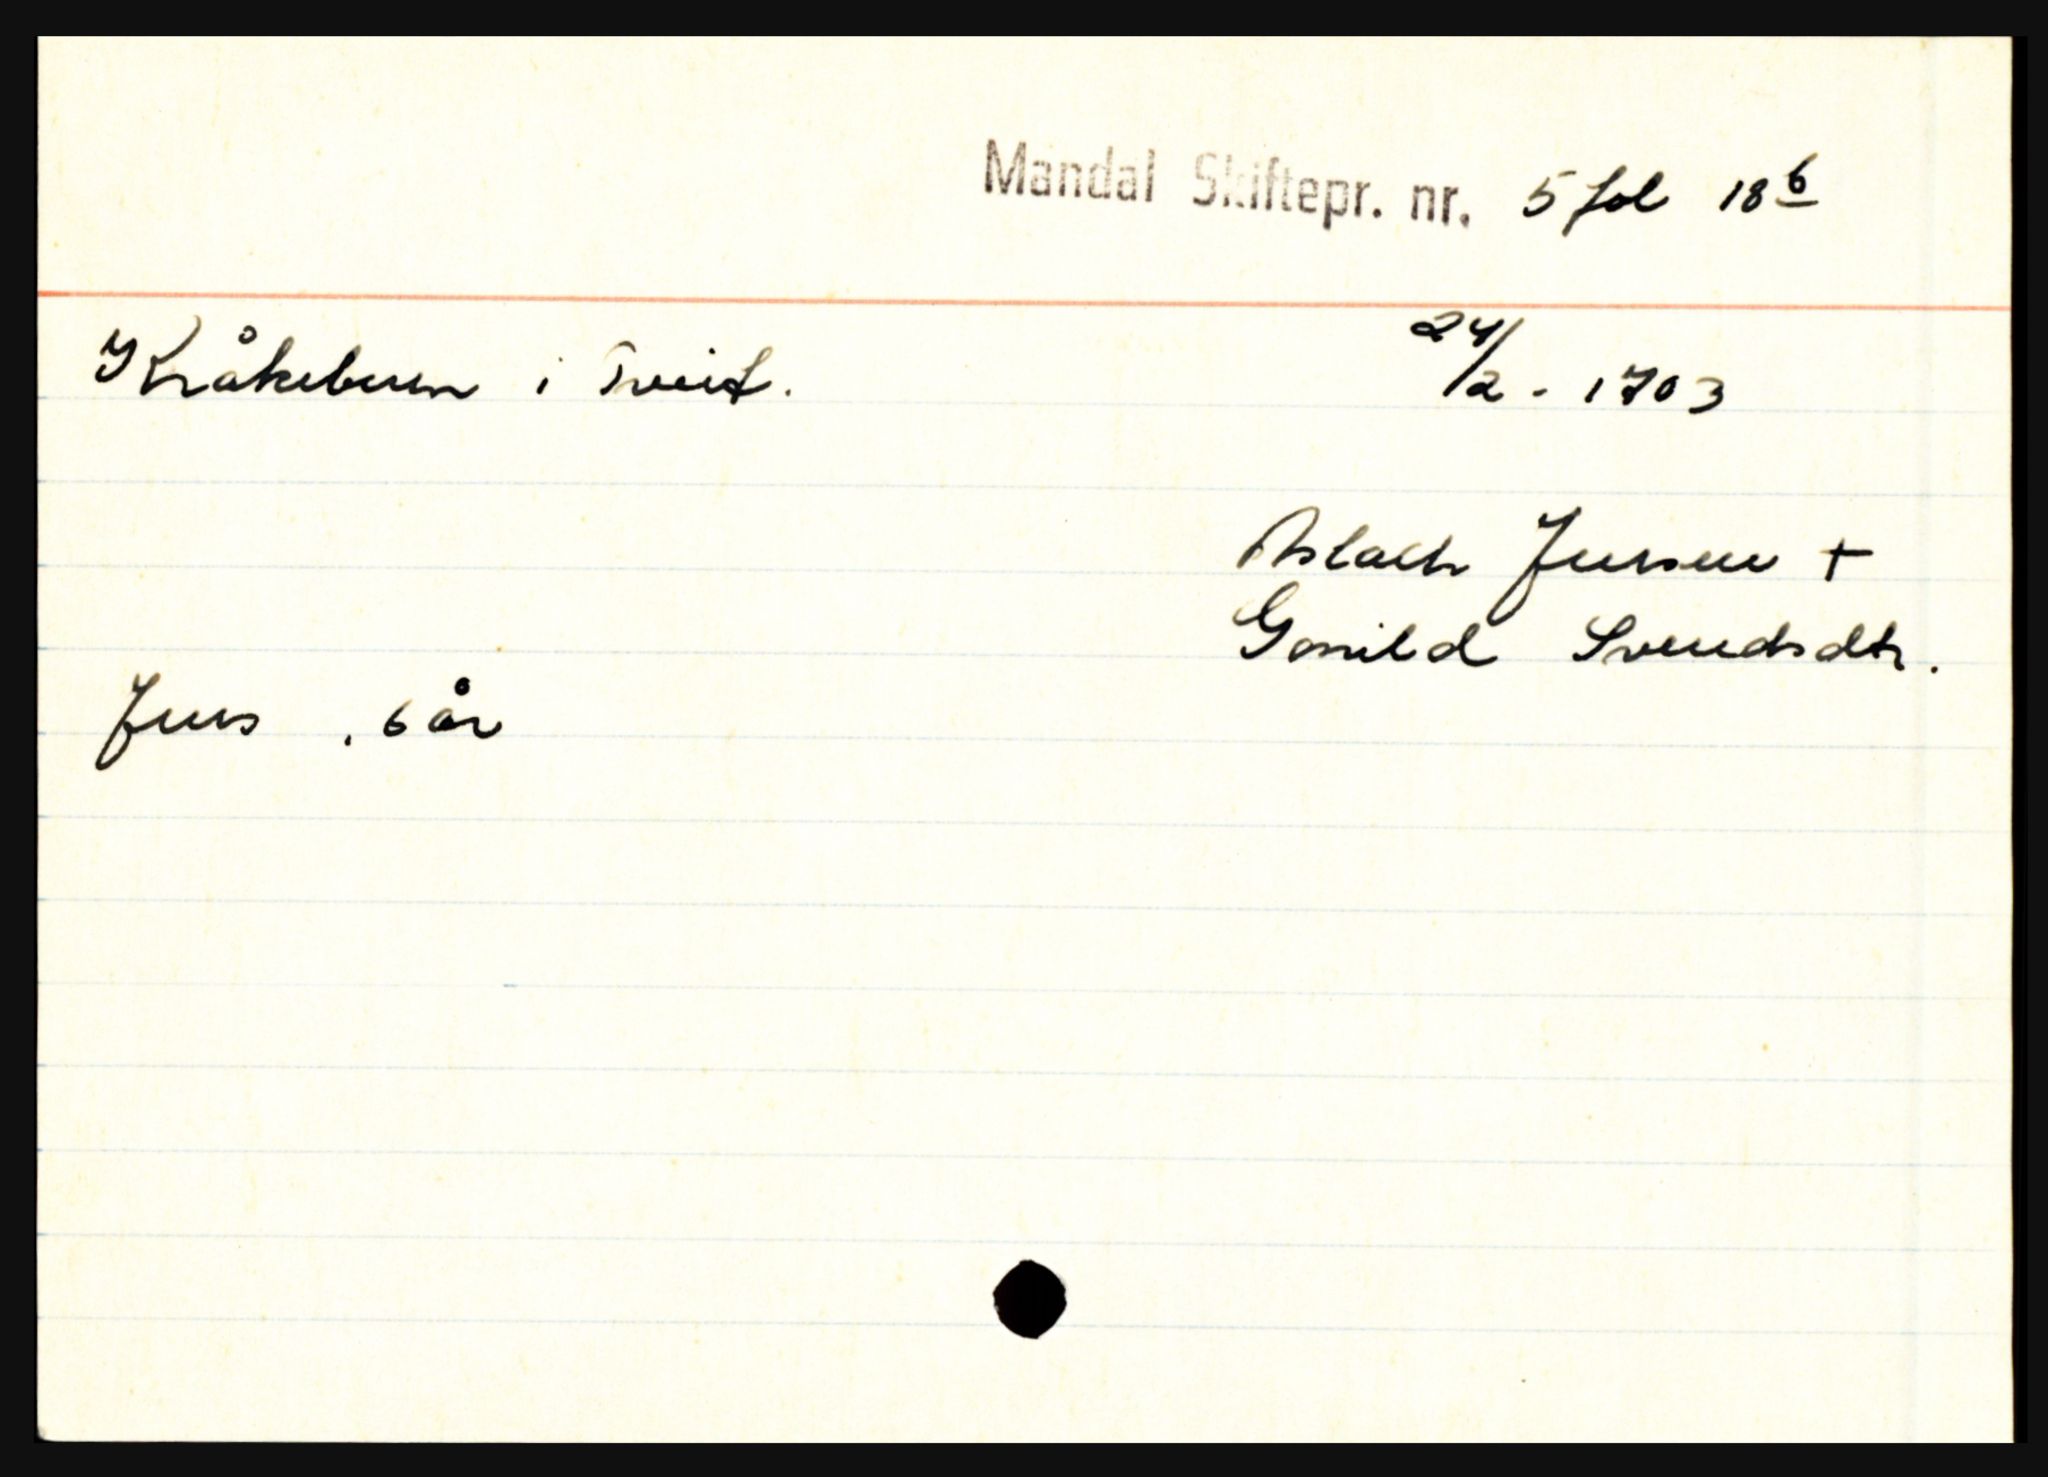 Mandal Skiftepr. nr. 5 fol 18 b
Kråkebuen i Tveit. 24/2 - 1703
Aslach Jensen +
Gonild Svendsdtr.
Jens , 6 år